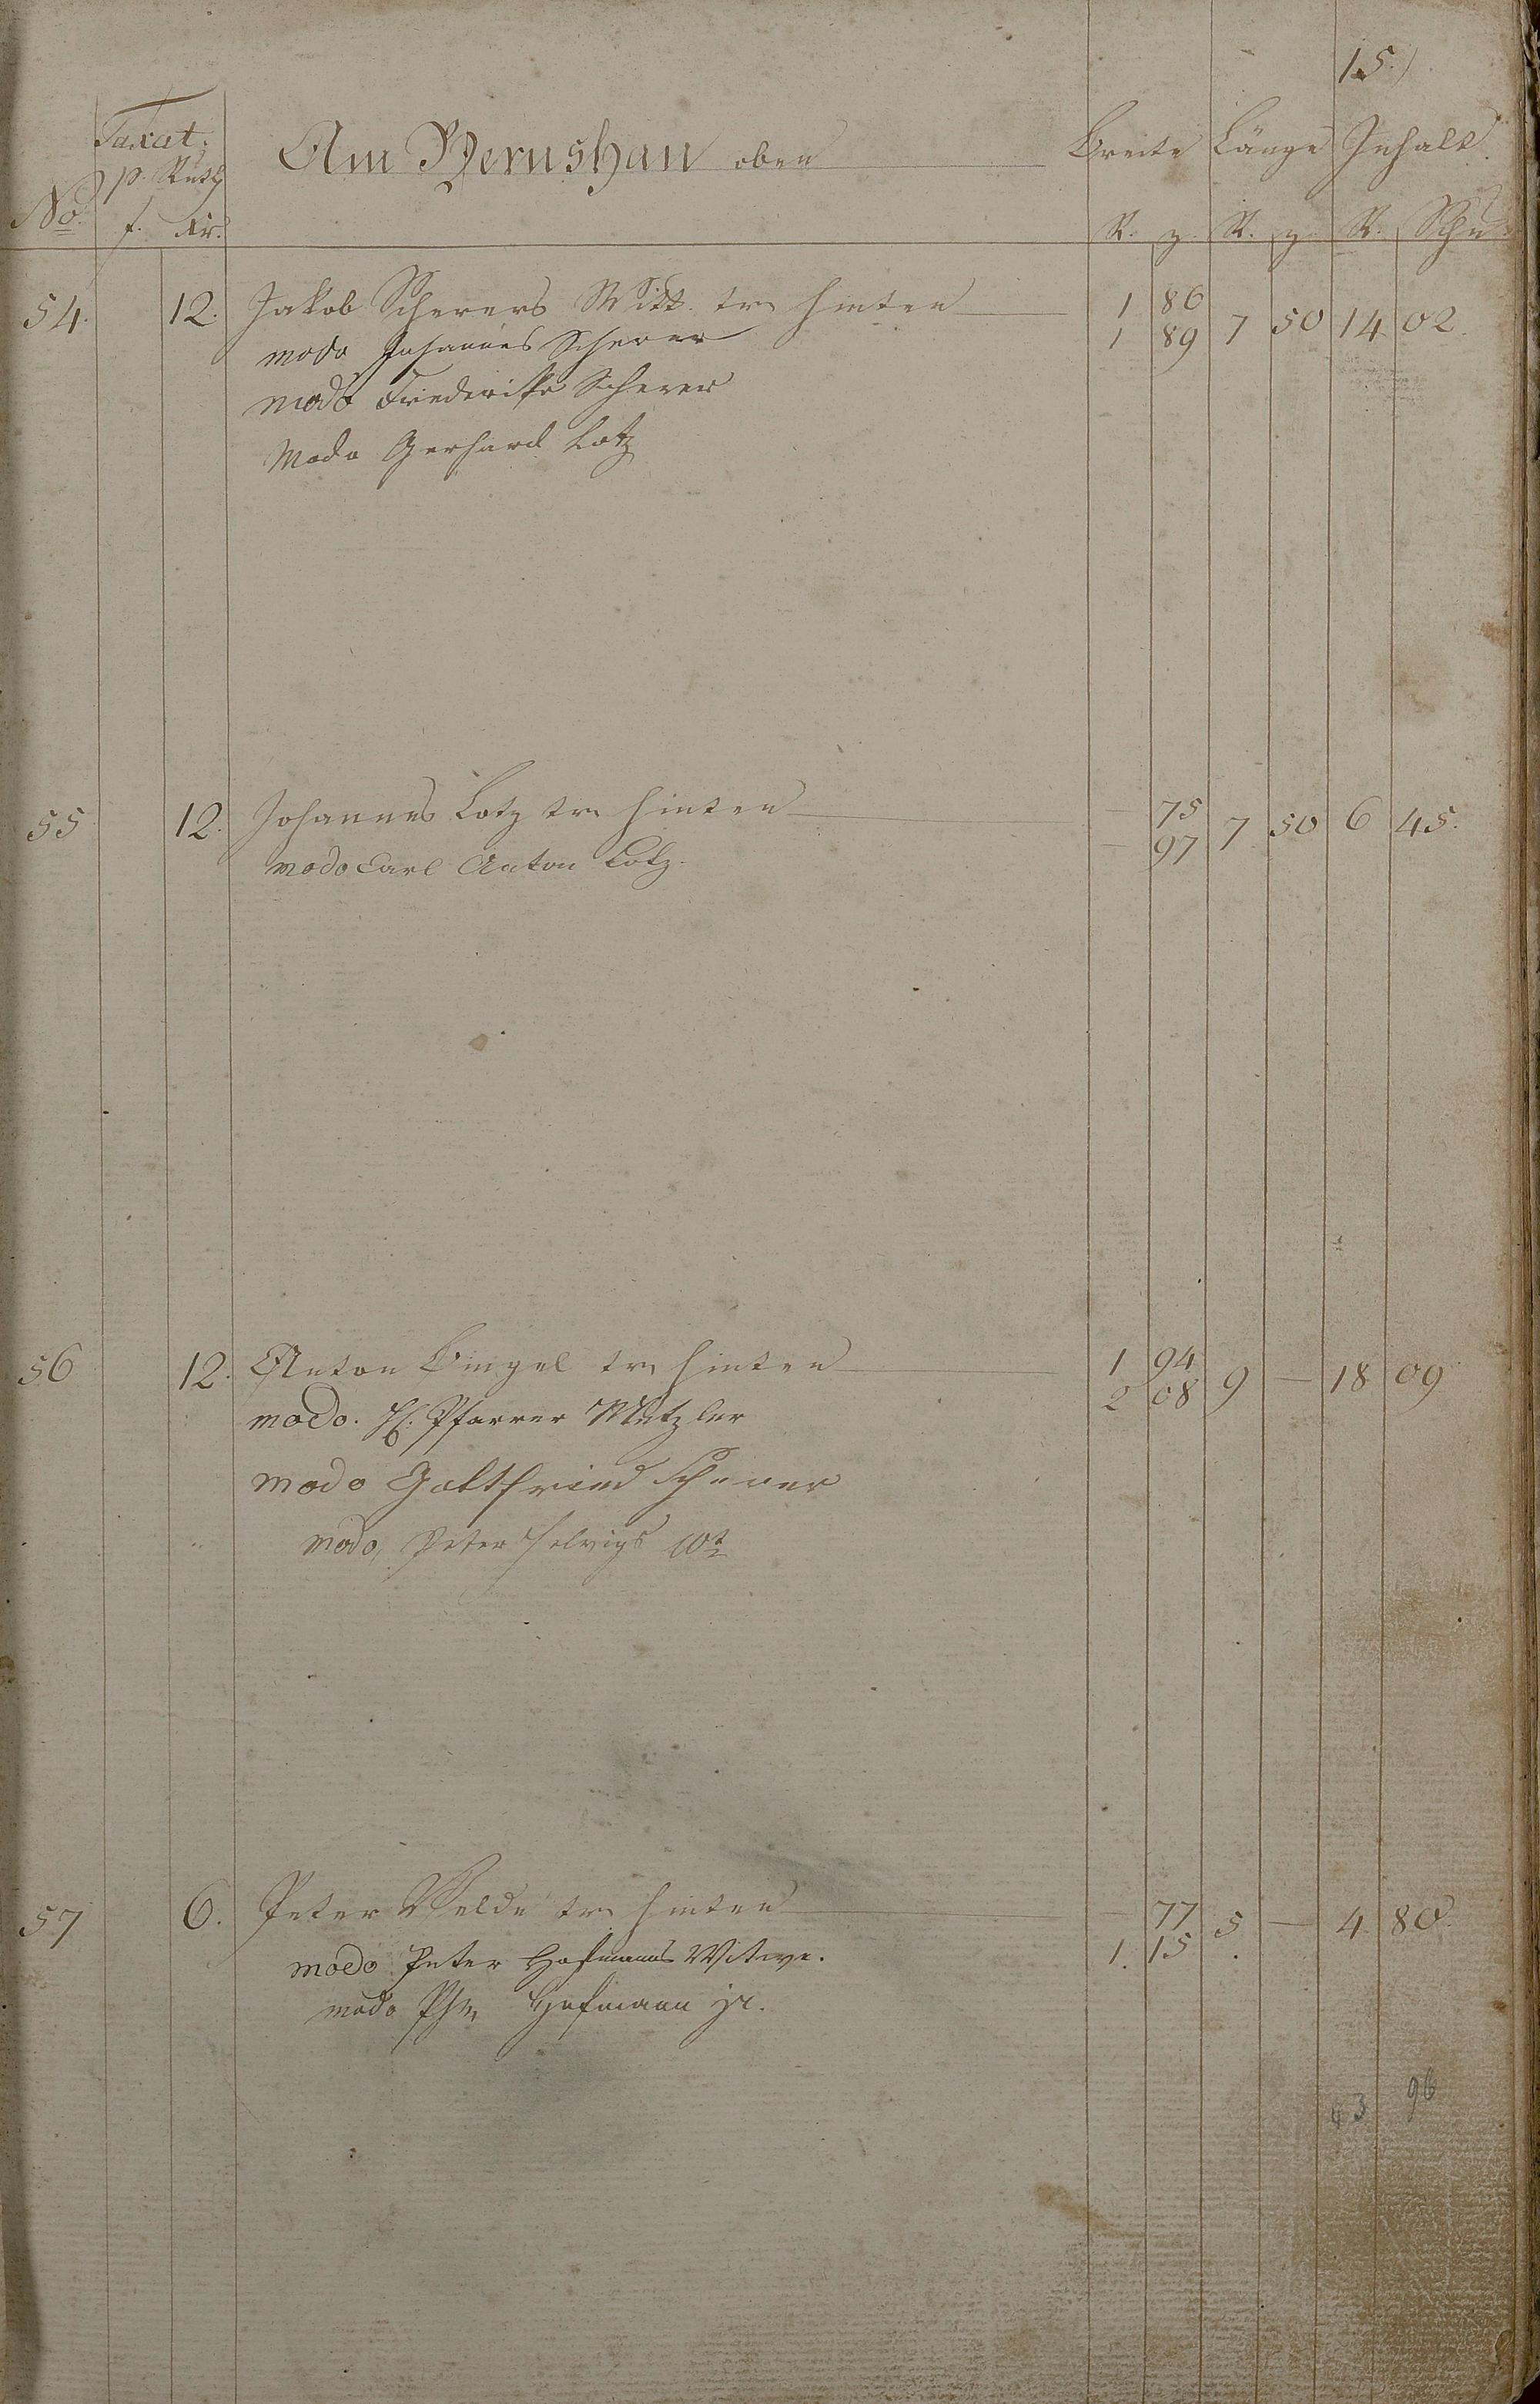 15.)
Taxat. Am Bernshan oben Breite Länge Inhalt
p. Ruth
No. f. Kr. R. z. R. z. R. Schu
54. 12. Jakob Scherers Witt. hinten 1 86
1 89 7 50 14 02.
modo Johannes Scherer
modo Friederike Scherer
Modo Gerhard Lotz
55 12. Johannes Lotz hinten — 75
— 97 7 50 6 45.
modo Carl Anton Lotz.
56 12. Anton Bingel hinten 1 94
2 08 9 — 18 09
modo. H. Pfarrer Metzler
modo Gottfried Scherer
modo, Peter Wt
57 6. Peter Velde hinten — 77
1. 15 5 — 4 80.
modo Peter Hofmanns Witwe.
modo Hofmann
43 96